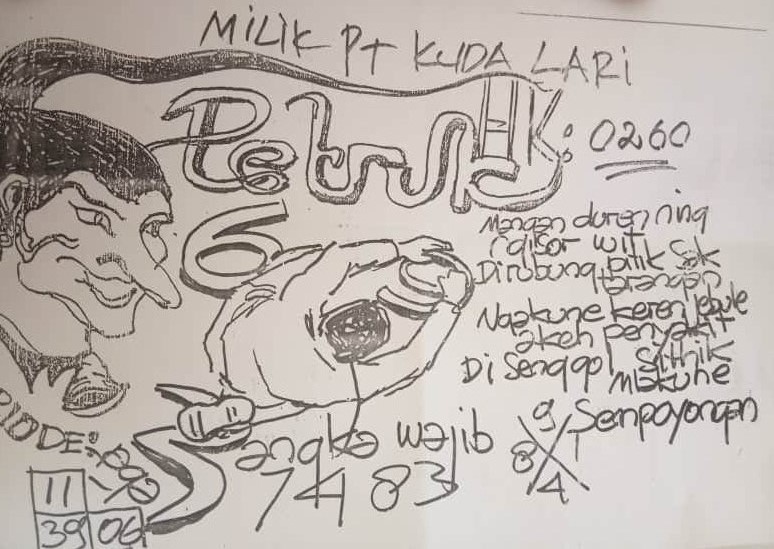 MILIK PT KUDA LARI
Petruk
HK: 0260
6
Mangan duren ning
ngisor wit
Dirubung pitik sak
terangan
Ngakune keren jebule
akeh penyakit
Di senggol sithik
mlakune
Sempoyongan
angka wajib
7483
9
8 1
4
11
39 06